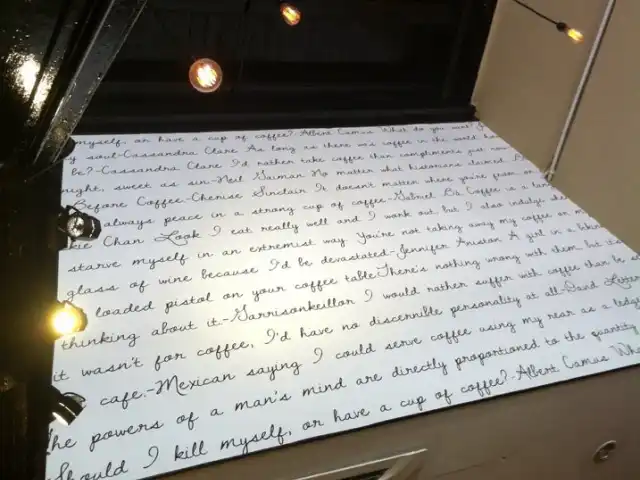 myself, or have a cup of coffee?-Albert Camus What do you want?
y soul-Cassandra Clare As long as there was coffee in the world, h
be?-Cassandra Clare I'd rather take coffee than compliments just now
night, sweet as sin-Neil Gaiman No matter what historians claimed, B
Before Coffee-Cherise Sinclair It doesn't matter where you're from or
always peace in a strong cup of coffee-Gabriel Bá Coffee is a lan
kie Chan Look I eat really well and I work out, but I also indulge
starve myself in an extremist way. You're not taking away my coffee or my
glass of wine because I'd be devastated-Jennifer Aniston A girl in a bikini
loaded pistol on your coffee table.There's nothing wrong with them, but it's
thinking about it.-Garrisonkeillor I would rather suffer with coffee than be se
it wasn't for coffee, I'd have no discernible personality at all.-David Letter
cafe.-Mexican saying I could serve coffee using my rear as a ledg
he powers of a man's mind are directly proportioned to the quantity
Should I kill myself, or have a cup of coffee?-Albert Camus Wh